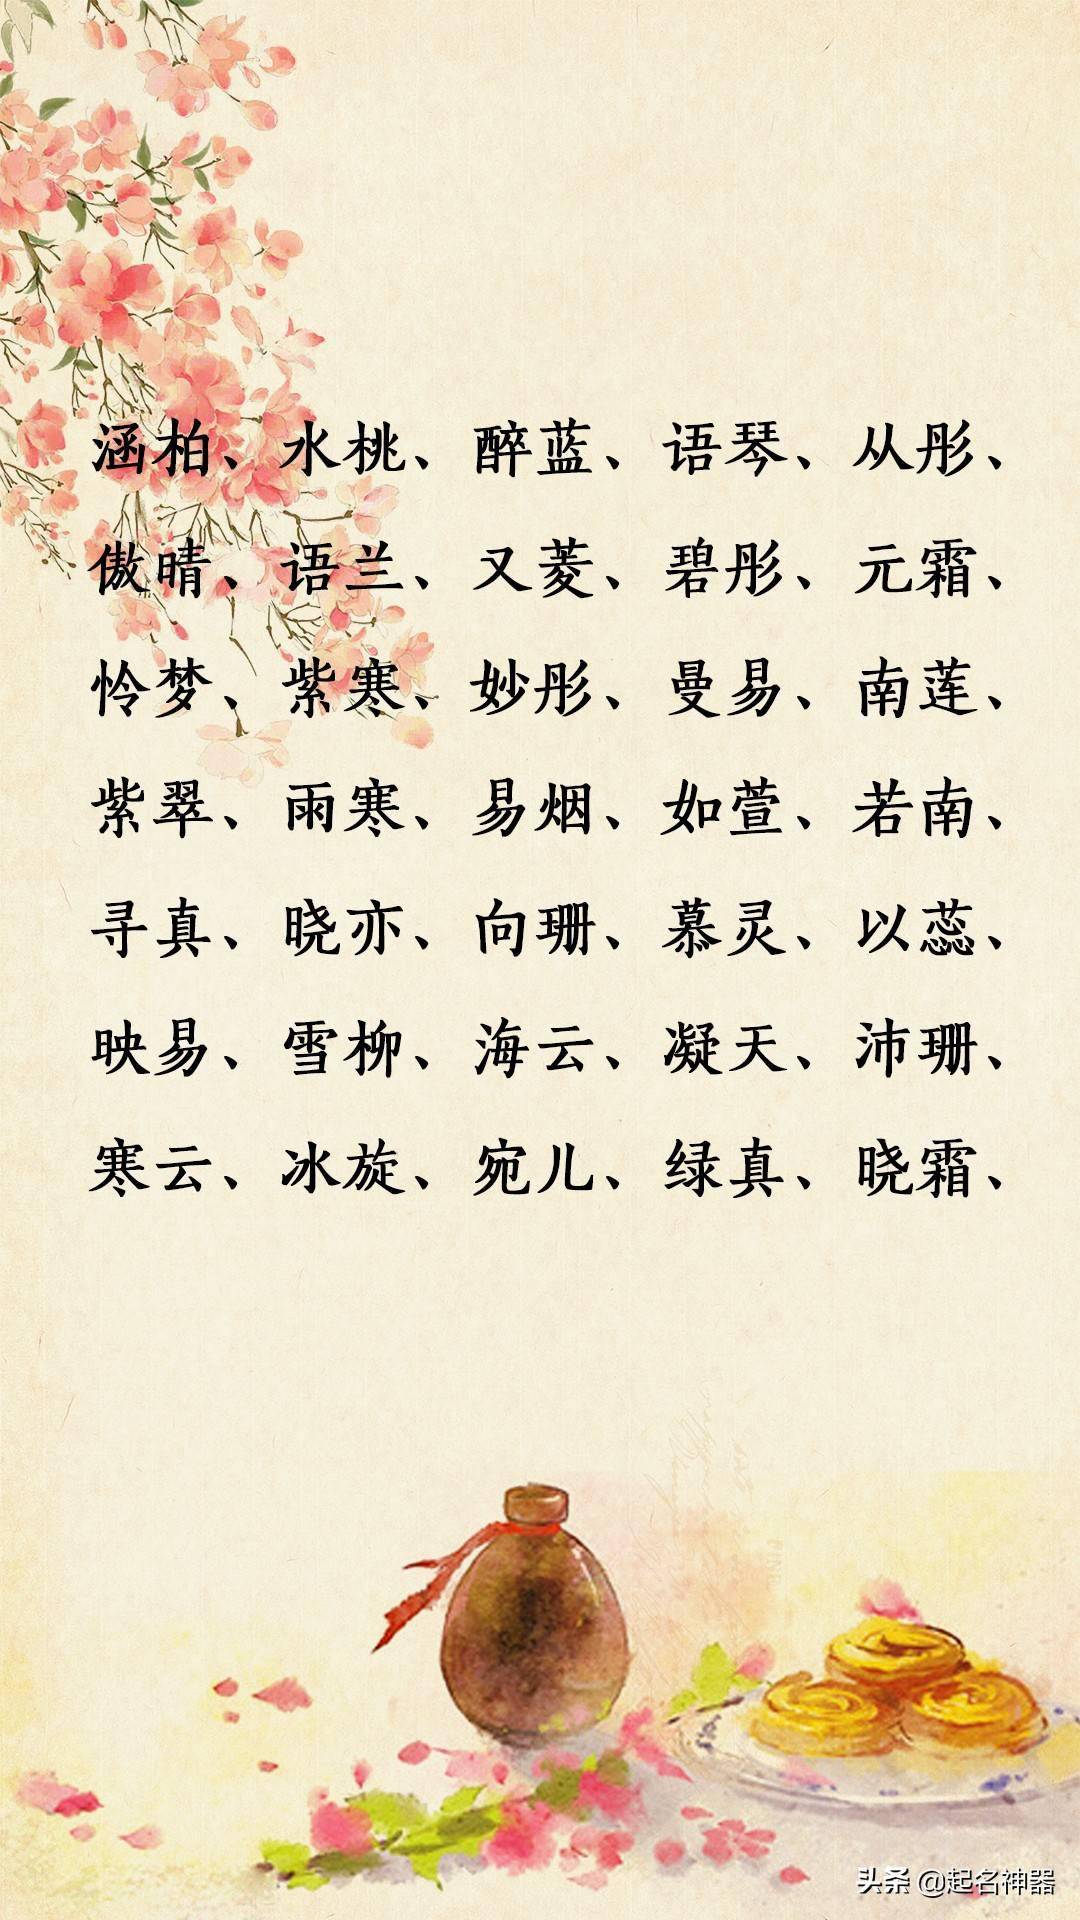 涵柏、水桃、醉蓝、语琴、从彤、
傲晴、语兰、又菱、碧彤、元霜、
怜梦、紫寒、妙彤、曼易、南莲、
紫翠、雨寒、易烟、如萱、若南、
寻真、晓亦、向珊、慕灵、以蕊、
映易、雪柳、海云、凝天、沛珊、
寒云、冰旋、宛儿、绿真、晓霜、
头条 @起名神器